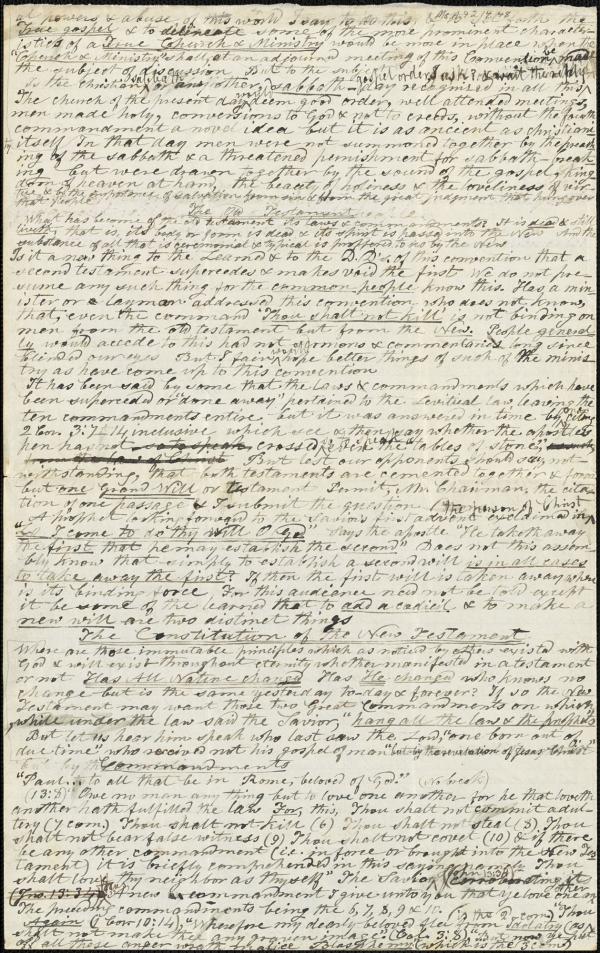 powers & abuse of this world I say to do this
True gospel & to delineate some of the more prominent character-
istics of a True Church & Ministry would be more in place
Church & Ministry" shall, at an adjourned meeting of this Convention be made
the subject of discussion But to the
Is the Christian or any other sabbath day recognized in all this
The church of the present day deem good order, well attended meetings,
men made holy, conversions to God & not to creeds, without the fourth
commandment a novel idea but it is as ancient as christian
itself In that day men were not summoned together by the preach
ing of the sabbath & a threatened punishment for sabbath-break
ing but were drawn together by the sound of the gospel, king
dom of heaven at hand, the beauty of holiness & the loveliness of vir-
tue & of the importance of salvation from sin & from the great judgment that hung over
that people
The Old Testament
What has become of the old testament its laws & commandments? It is dead & still
liveth, that is, its body or form is dead & its spirit is passed into the New And the
substance of all that is ceremonial & typical is proffered to us by the New
Is it a new thing to the Learned & to the D.D's. of this convention that a
second testament supercedes & makes void the first We do not pre-
sume any such thing for the common people know this. Has a min-
ister or a layman addressed this convention who does not know,
that, even the command 'Thou shalt not kill' is not binding on
men from the old testament but from the New. People general
ly would accede to this had not opinions & commentaries long since
blinded our eyes But I fain would hope better things of such of the minis-
try as have come up to this convention
It has been said by some that the laws & commandments which have
been superceded or "done away" pertained to the Levitical law, leaving the
ten commandments entire but it was answered in time by citing
2 Cor. 3:7–14 inclusive which say whether the apostles
pen has not crossed even the tables of stone,"
But lest our opponents should say, not-
withstanding, that both testaments are cemented together & form
but one Grand Will or testament Permit, Mr. Chairman, the cita-
tion of one passage & I submit the question
A Prophet looking forward to the Saviors first advent exclaimed in the person of Christ
"Lo I come to do thy Will O God" Says the apostle "He taketh away
the first that he may establish the second" Does not this assem-
bly know that simply to establish a second will is in all cases
to take away the first? If then the first will is taken away where
is its binding force, For this audience need not be told except
it be some of the learned that to add a codicil & to make a
new will are two distinct things
The Constitution of the New Testament
Where are those immutable principles which as noticed by others existed with
God & will exist throughout eternity whether manifested in a testament
or not Has All Nature changed Has He changed who knows no
change but is the same yesterday to-day & forever? If so the New
Testament may want those two Great Commandments on which,
while under the law said the Savior, "hang all the law & the prophets"
But let us hear him speak who last saw the Lord, "one born out of
due time" who received not his gospel of man "but by the revelation of Jesus Christ"
Commandments
"Paul... to all that be in Rome, beloved of God." (No break)
(13:8) "Owe no man any thing but to love one another for he that loveth
another hath fulfilled the law For, this, Thou shalt not commit adul-
tery (7 com.) Thou shalt not kill (6) Thou shalt not steal (8) Thou
shalt not bear false witness (9) Thou shalt not covet (10) & if there
be any other commandment (ie. in force or brought into the New Tes-
tament) it is briefly comprehended in this saying namely Thou
shalt love thy neighbor as thyself" The Savior corroborating it
(Jno. 13:34) A new commandment I give unto you that ye love one another
The preceding commandments being the 6, 7, 8, 9 & 10. is the 2 com.) "Thou
Again (1 Cor 10:14), "Wherefore my dearly beloved flee from Idolatry (as
shalt not make thee any graven image" (Col. 3:8) "But now ye put
off all these anger wrath malice Blasphemy (which is the 3 com.)